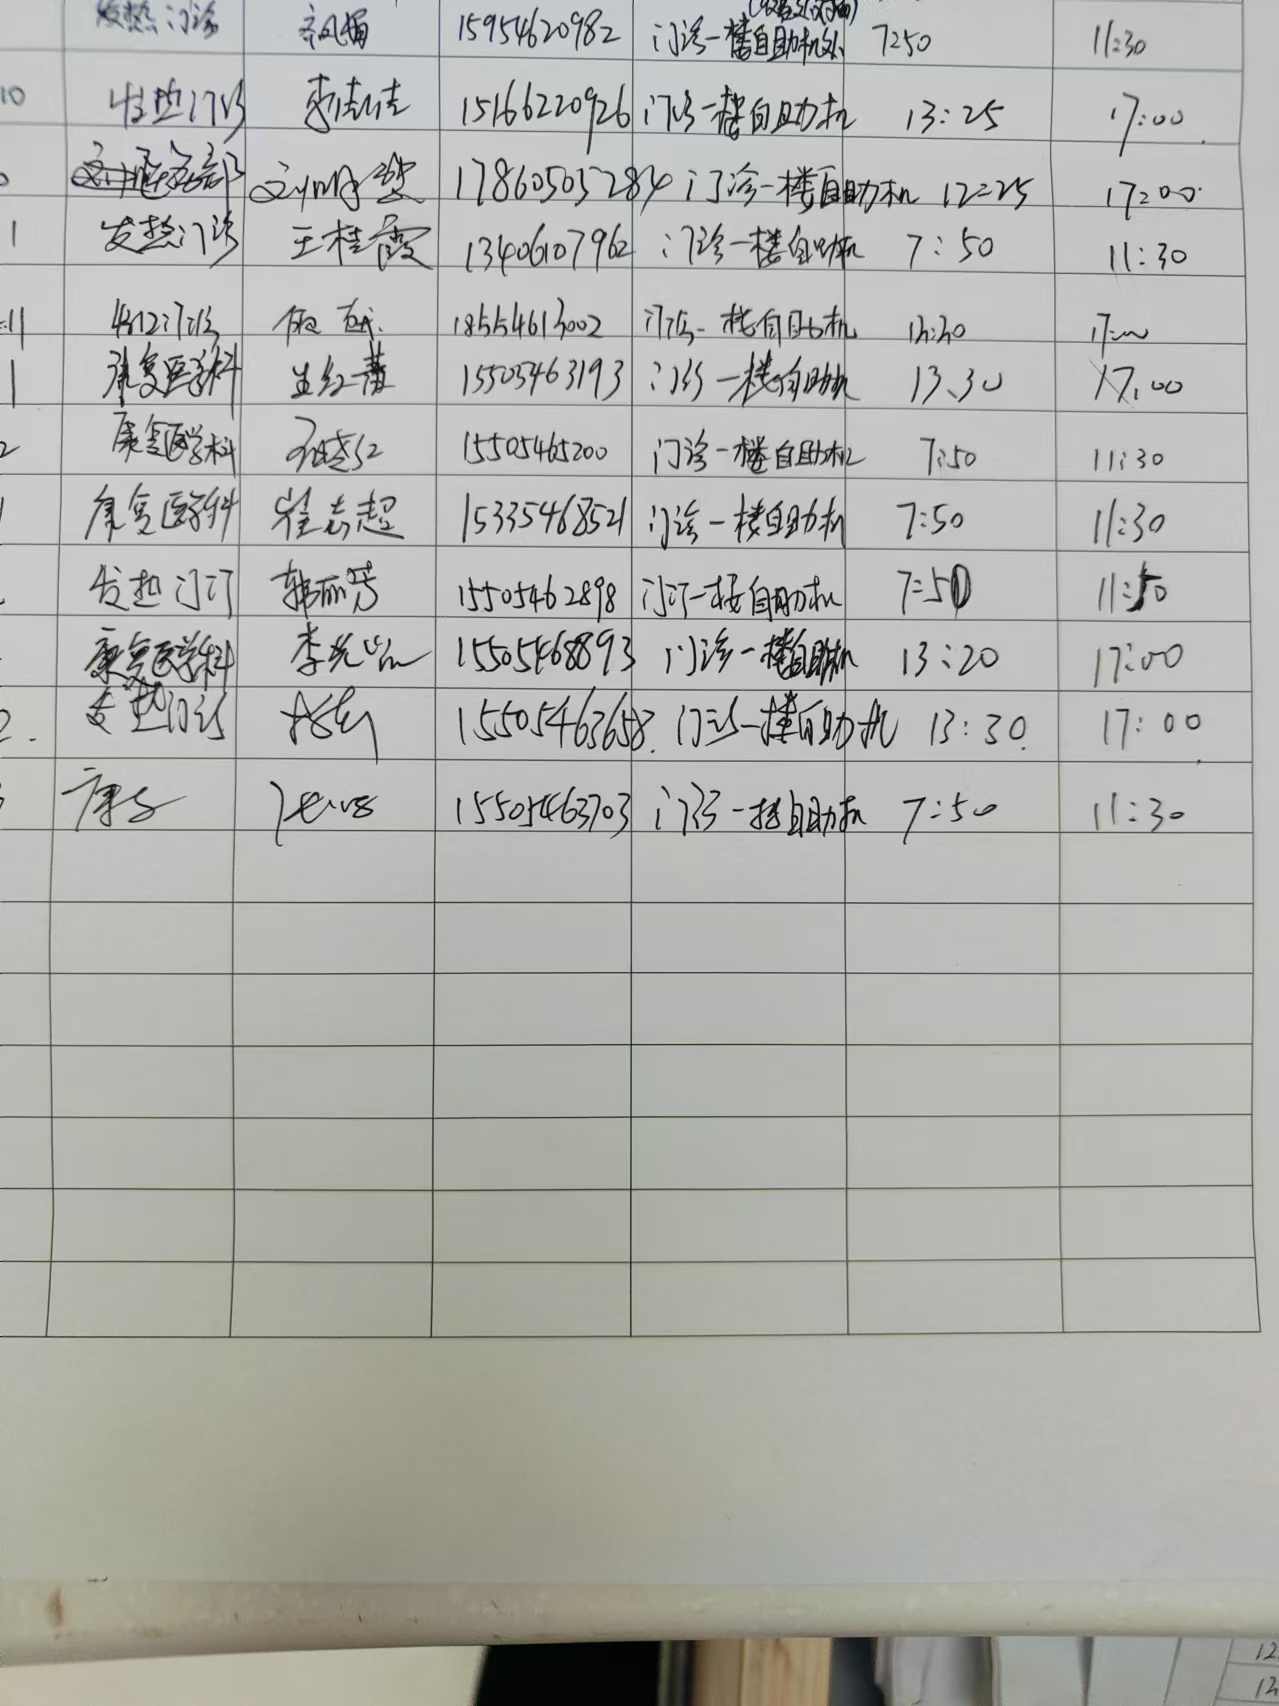 发热门诊 15954620982 门诊一楼自助机处 7:50 11:30
10 发热门诊 李佳佳 15166220926 门诊一楼自助机 13:25 17:00
17860505284 门诊一楼自助机 12:25 17:00
1 发热门诊 王桂霞 13406107962 门诊一楼自助机 7:50 11:30
11 18554613002 门诊一楼自助机 13:30 17:00
1 康复医学科 15505463193 门诊一楼自助机 13.30 17.00
2 康复医学科 15505465200 门诊一楼自助机 7:50 11:30
康复医学科 崔志超 15335468521 门诊一楼自助机 7:50 11:30
发热门诊 韩丽芳 15505462898 门诊一楼自助机 7:50 11:50
康复医学科 15505468893 门诊一楼自助机 13:20 17:00
2. 发热门诊 15505463658. 门诊一楼自助机 13:30. 17:00
康复 15505463703 门诊一楼自助机 7:50 11:30